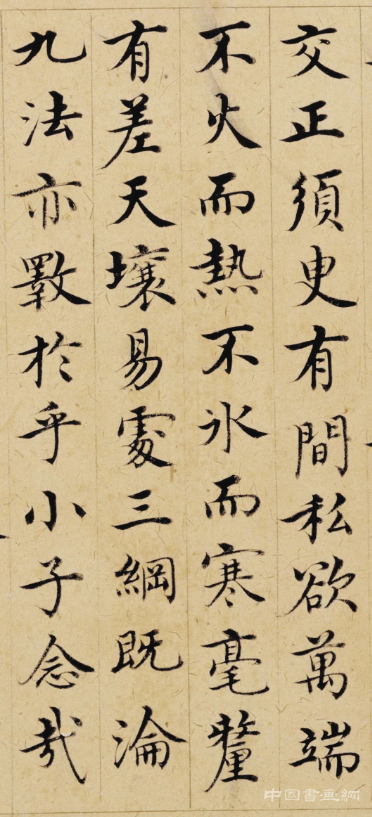 交正須臾有間私欲萬端
不火而熱不氷而寒毫釐
有差天壤易處三綱既淪
九法亦斁於乎小子念哉
中国書画網